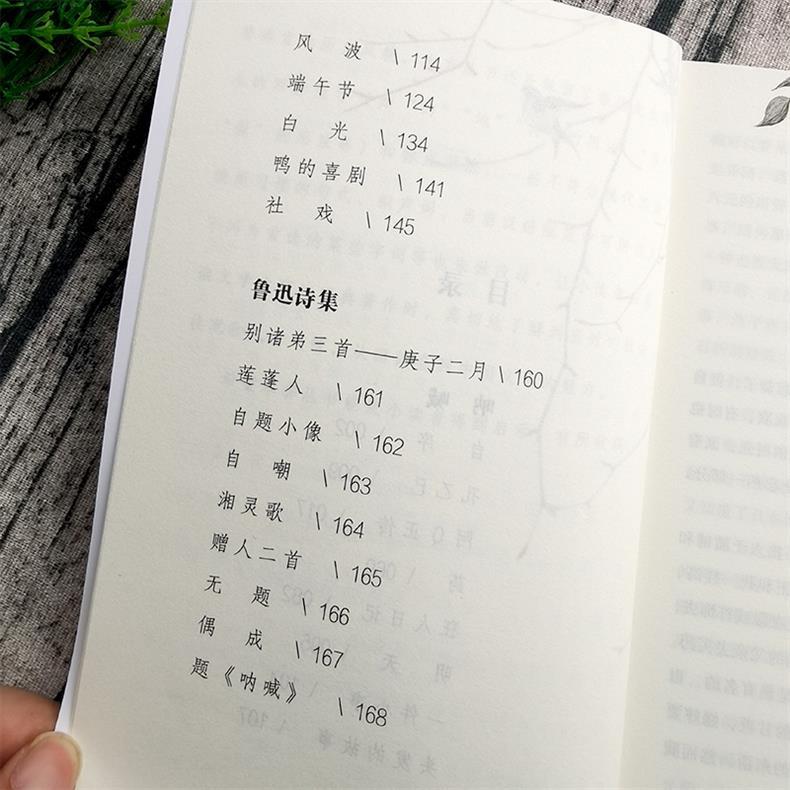 风 波 \ 114
端午节 \ 124
白 光 \ 134
鸭的喜剧 \ 141
社 戏 \ 145
鲁迅诗集
别诸弟三首——庚子二月 \ 160
莲蓬人 \ 161
自题小像 \ 162
自 嘲 \ 163
湘灵歌 \ 164
赠人二首 \ 165
无 题 \ 166
偶 成 \ 167
题《呐喊》 \ 168